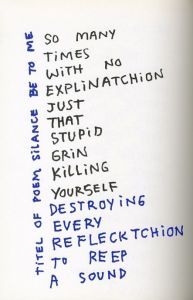 TITEL OF POEM, SILANCE BE TO ME
SO MANY
TIMES
WITH NO
EXPLINATCHION
JUST
THAT
STUPID
GRIN
KILLING
YOURSELF
DESTROYING
EVERY
REFLECKTCHION
TO REEP
A SOUND